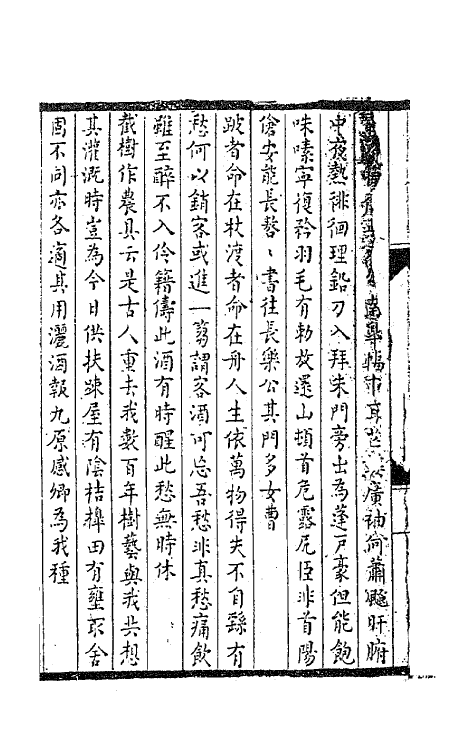 廣袖何蕭颸肝腑
中夜熱徘徊理鉛刀入拜朱門旁出為蓬戸豪但能飽
味嗉寧復矜羽毛有勅放還山頓首危露尻臣非首陽
傖安能長嗸〻書往長樂公其門多女曹
跛者命在杖渡者命在舟人生依萬物得失不自繇有
愁何以銷客或進一蒭謂客酒可忘吾愁非真愁痛飲
雖至醉不入伶籍儔此酒有時醒此愁無時休
截樹作農具云是古人重去我數百年樹藝與我共想
其灌溉時豈為今日供扶疎屋有陰桔槹田有壅取舍
固不同亦各適其用灑酒報九原感卿為我種